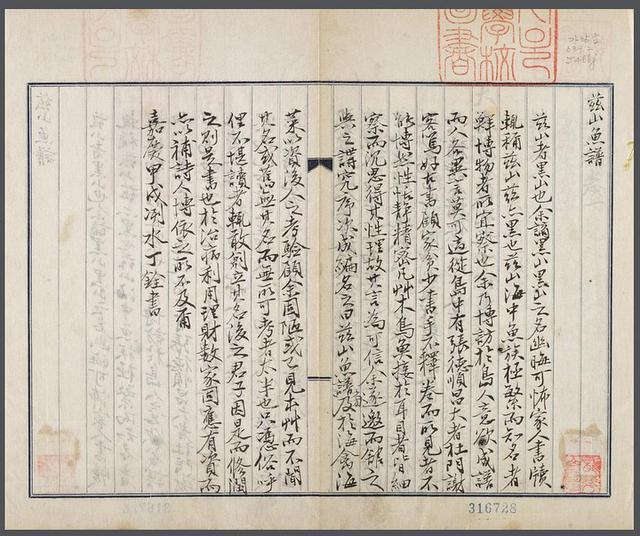 玆山魚譜
玆山者黑山也余謫黑山黑山之名幽晦可怖家人書牘
輒稱玆山玆亦黑也玆山海中魚族極繁而知名者
鮮博物者所宜察也余乃博訪於島人意欲成譜
而人各異言莫可適從島中有張德順昌大者杜門謝
客篤好古書顧家貧少書手不釋卷而所見者不
能博然性恬靜精密凡艸木鳥魚接於耳目者皆細
察而沉思得其性理故其言爲可信余遂邀而館之
與之講究序次成編名之曰玆山魚譜旁及於海禽海
菜以資後人之考驗顧余固陋或已見本艸而不聞
其名或舊無其名而無所可考者太半也只憑俗呼
俚不堪讀者輒敢創立其名後之君子因是而修潤
之則是書也於治病利用理財數家固應有資而
亦以補詩人博依之所不及爾
嘉慶甲戌洌水丁銓著
玆山魚譜
316728